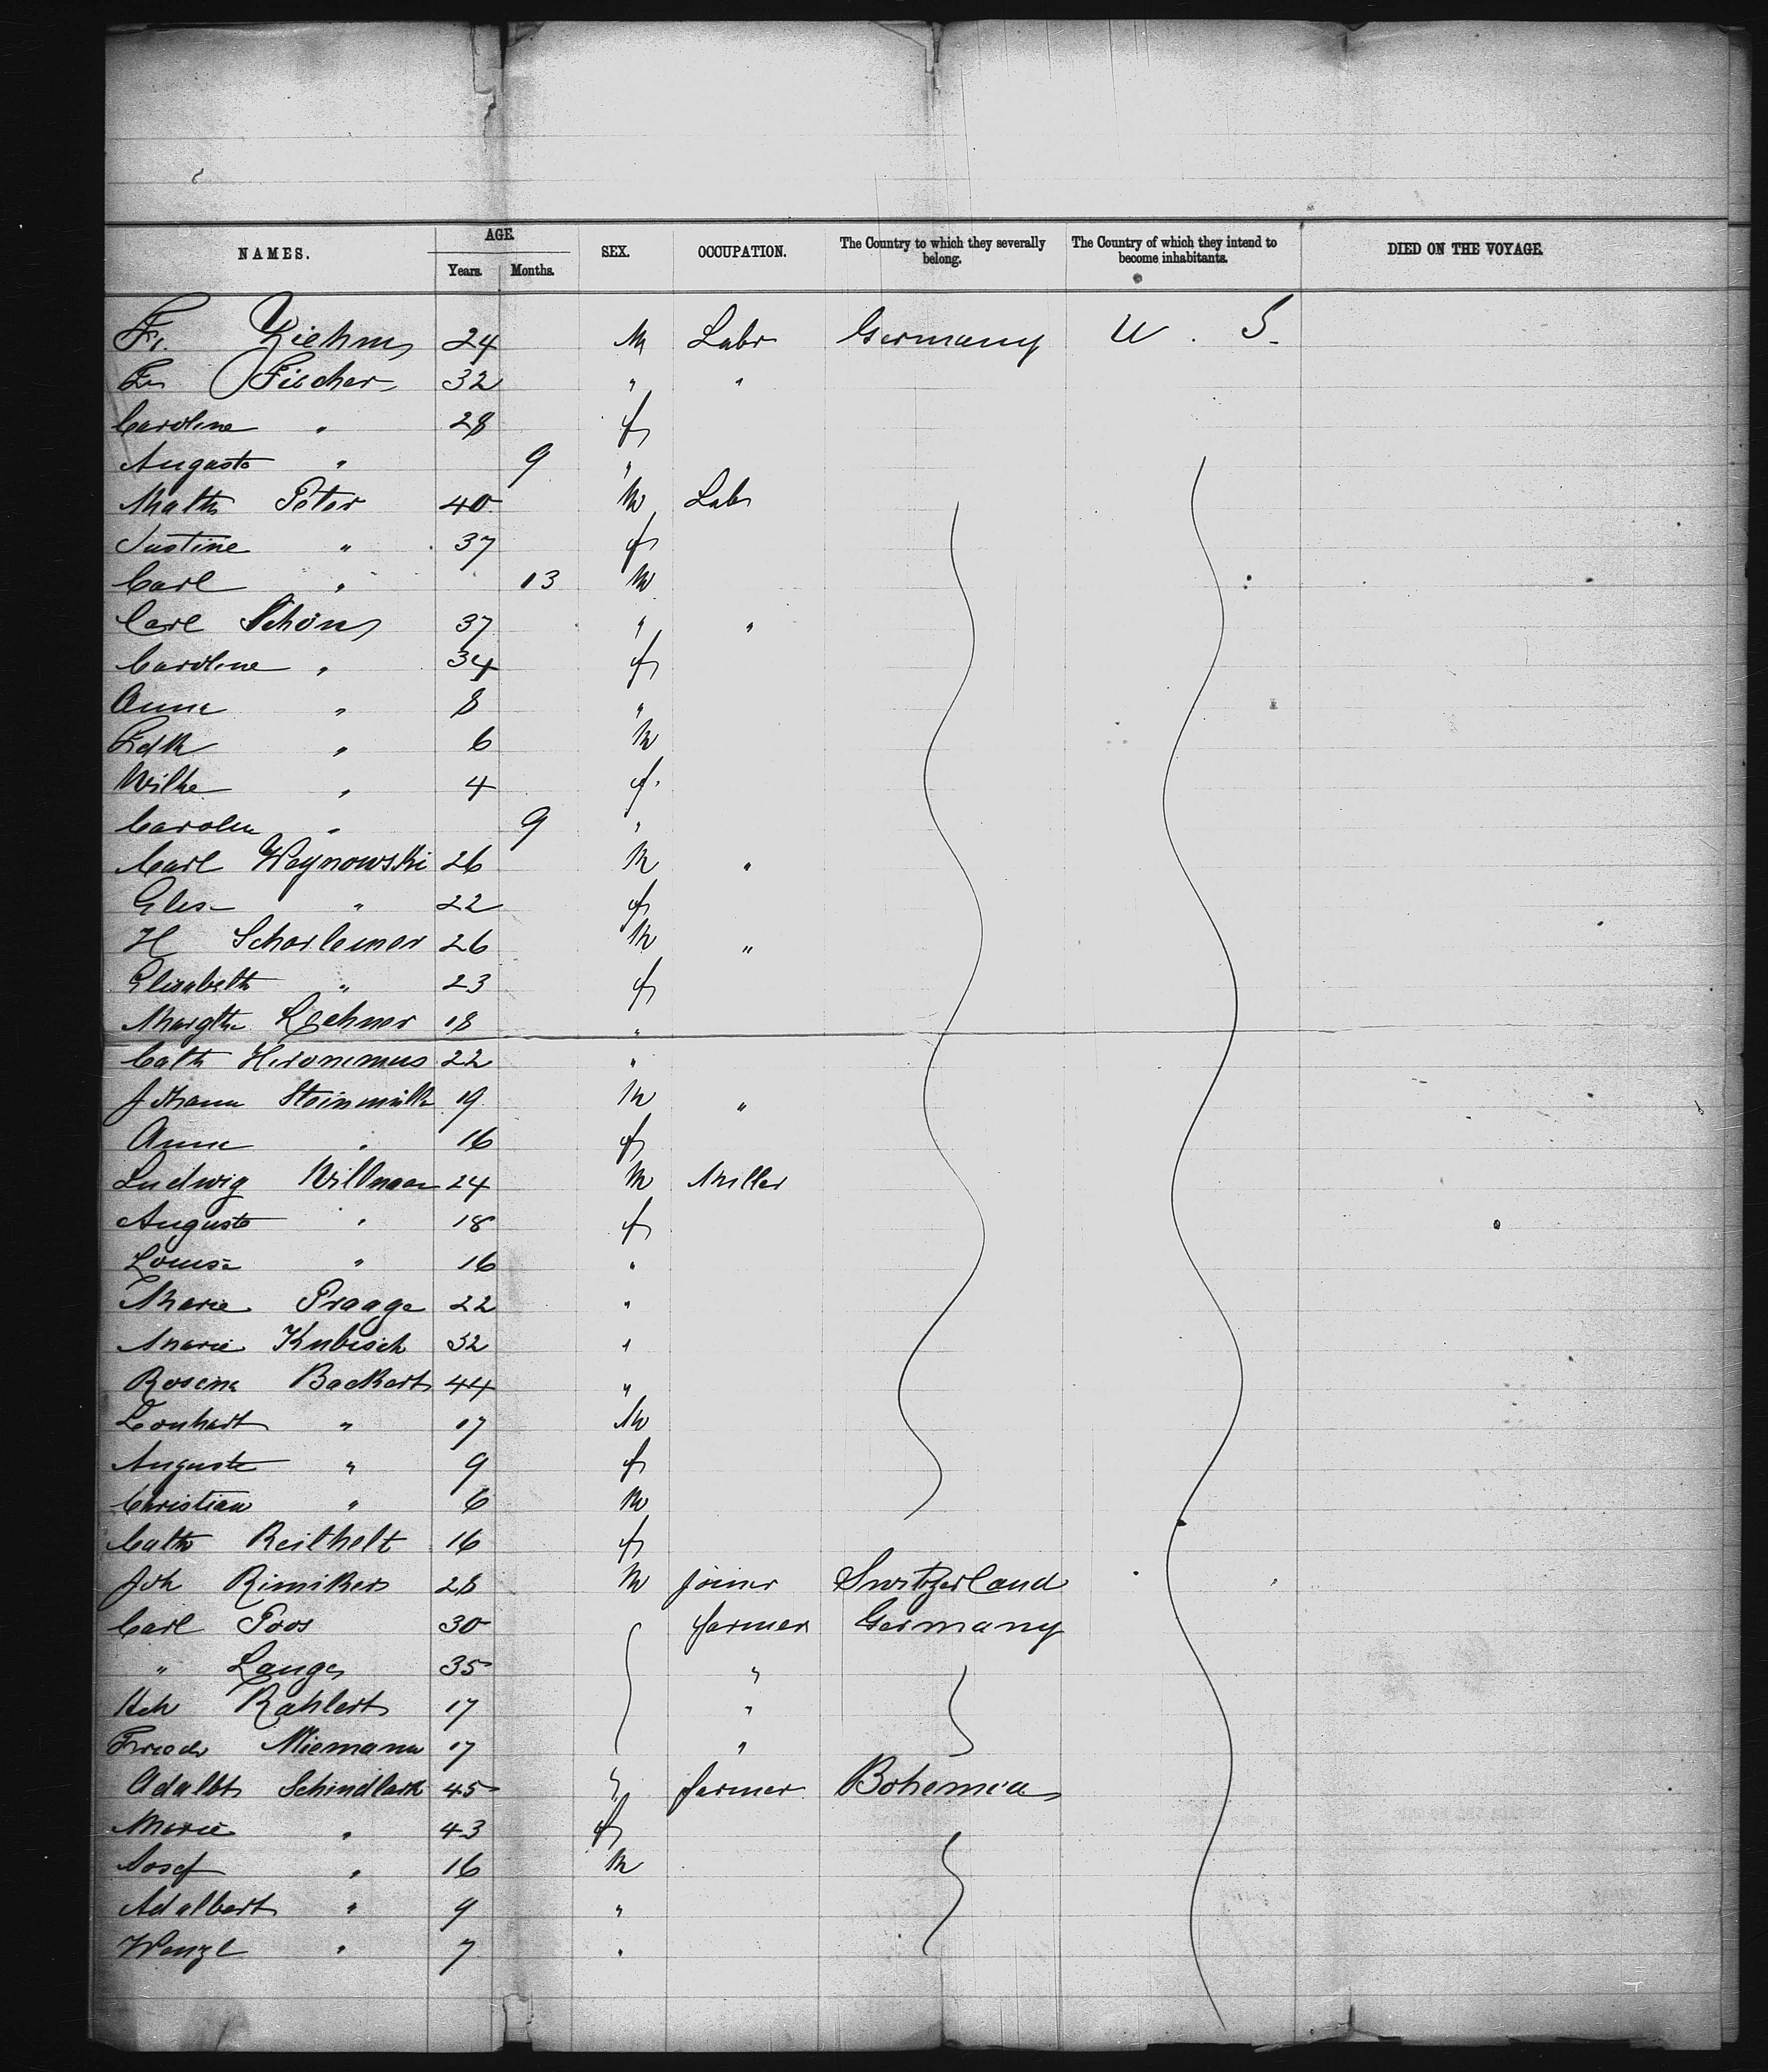 NAMES. AGE. SEX. OCCUPATION. The Country to which they severally belong. The Country of which they intend to become inhabitants. DIED ON THE VOYAGE.
Years. Months.
Fr. Ziehm 24 M Labr Germany U. S.
Fr Fischer 32 " "
Caroline " 28 f
Auguste " 9 "
Math Peter 40 M Labr
Justine " 37 f
Carl " 13 M
Carl Schön 37 " "
Caroline " 34 f
Anna " 8 "
Fdk " 6 M
Wilhe " 4 f
Carolin " 9 "
Carl Woynowski 26 M "
Elis " 22 f
H Schorlemer 26 M "
Elisabeth " 23 f
Margthe Lechner 18 "
Cath Hironimus 22 "
Johann Steinmüller 19 M "
Anna " 16 f
Ludwig Willman 24 M Miller
Auguste " 18 f
Louisa " 16 "
Marie Praage 22 "
Marie Kubisch 32 "
Rosina Backert 44 "
Leonhart " 17 M
Auguste " 9 f
Christian " 6 M
Cath Reithelt 16 f
Joh Rimiker 28 M joiner Switzerland
Carl Poos 30 farmer Germany
" Lange 35 "
Hch Kahlert 17 "
Friedr Niemann 17 "
Adalbt Schindlark 45 " farmer Bohemia
Marie " 43 f
Josef " 16 M
Adalbert " 9 "
Wenzl " 7 "